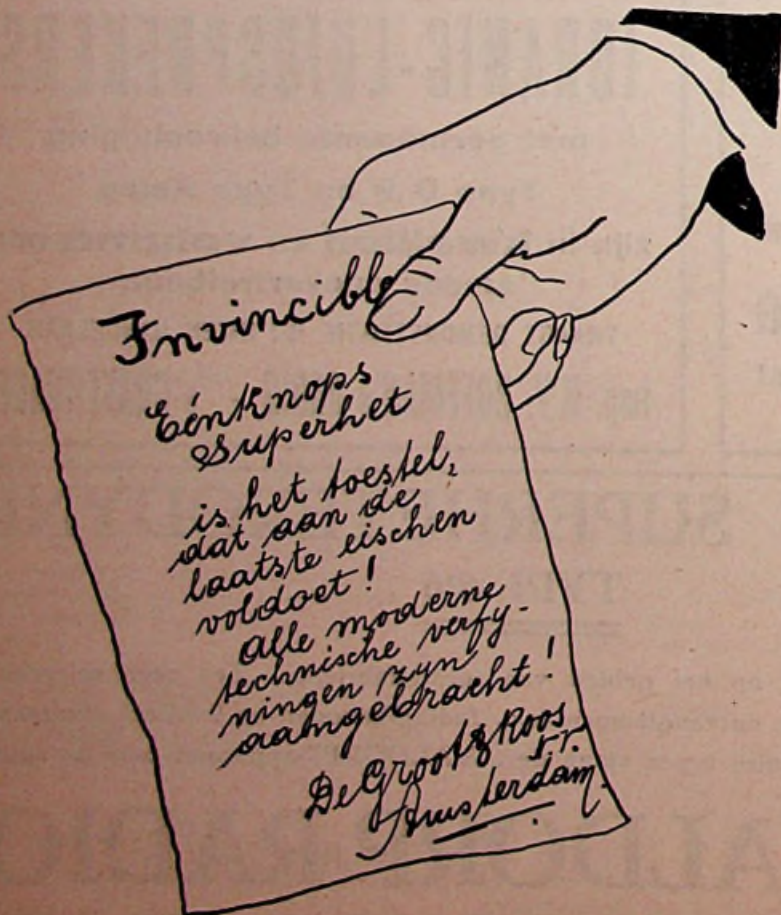 Invincible
Eénknops
Superhet
is het toestel,
dat aan de
laatste eischen
voldoet!
Alle moderne
technische verfy-
ningen zyn
aangebracht!
De Groot & Roos
Amsterdam.